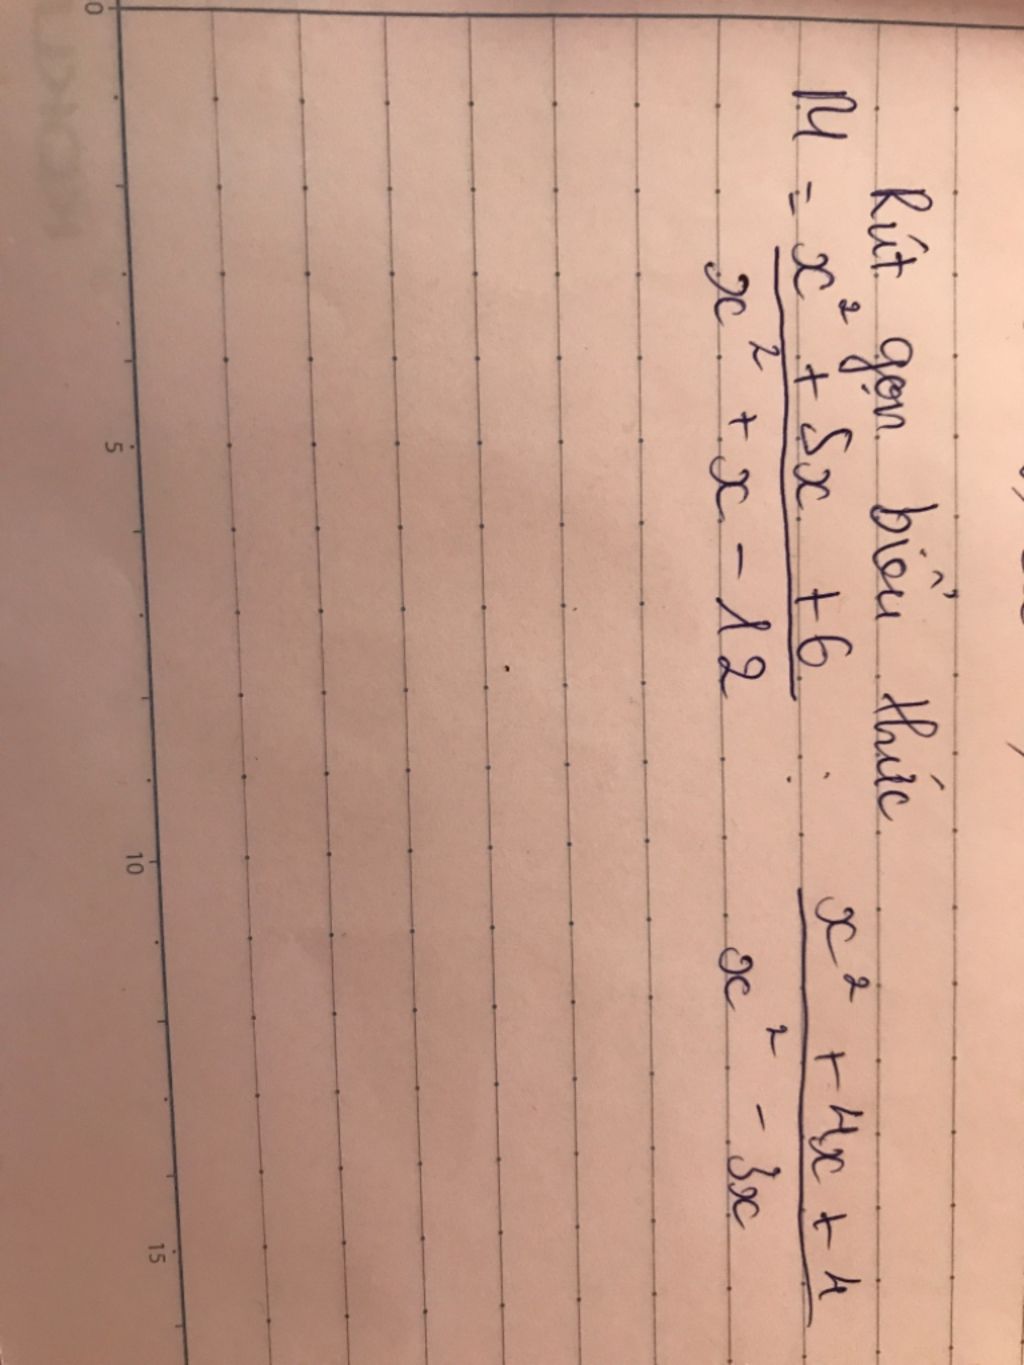 Rút gọn biểu thức
M = x² + 5x + 6 : x² + 4x + 4
x² + x - 12 x² - 3x
0 5 10 15